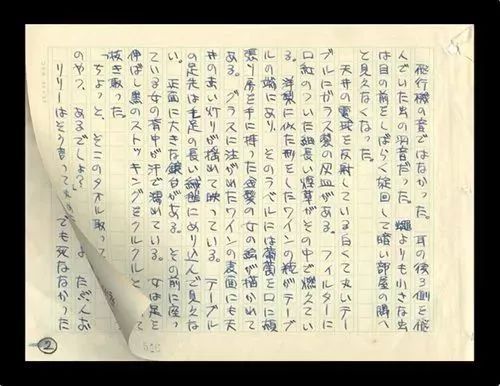 飛行機の音ではなかった。耳の後ろ側を飛
んでいた虫の羽音だった。蠅よりも小さな虫
は目の前をしばらく旋回して暗い部屋の隅へ
と見えなくなった。
天井の電球を反射している白くて丸いテー
ブルにガラス製の灰皿がある。フィルターに
口紅のついた細長い煙草がその中で燃えてい
る。洋梨に似た形をしたワインの瓶がテーブ
ルの端にあり、そのラベルには葡萄を口に頬
張り房を手に持った金髪の女の絵が描かれて
ある。グラスに注がれたワインの表面にも天
井の赤い灯りが揺れて映っている。テーブル
の足先は毛足の長い絨毯にめり込んで見えな
い。正面に大きな鏡台がある。その前に座っ
ている女の背中が汗で濡れている。女は足を
伸ばし黒のストッキングをクルクルと
抜き取った。
「ちょっと、そこのタオル取って
のやつ、あるでしょ?」
リリーはそう言って
でも死ななかった
②